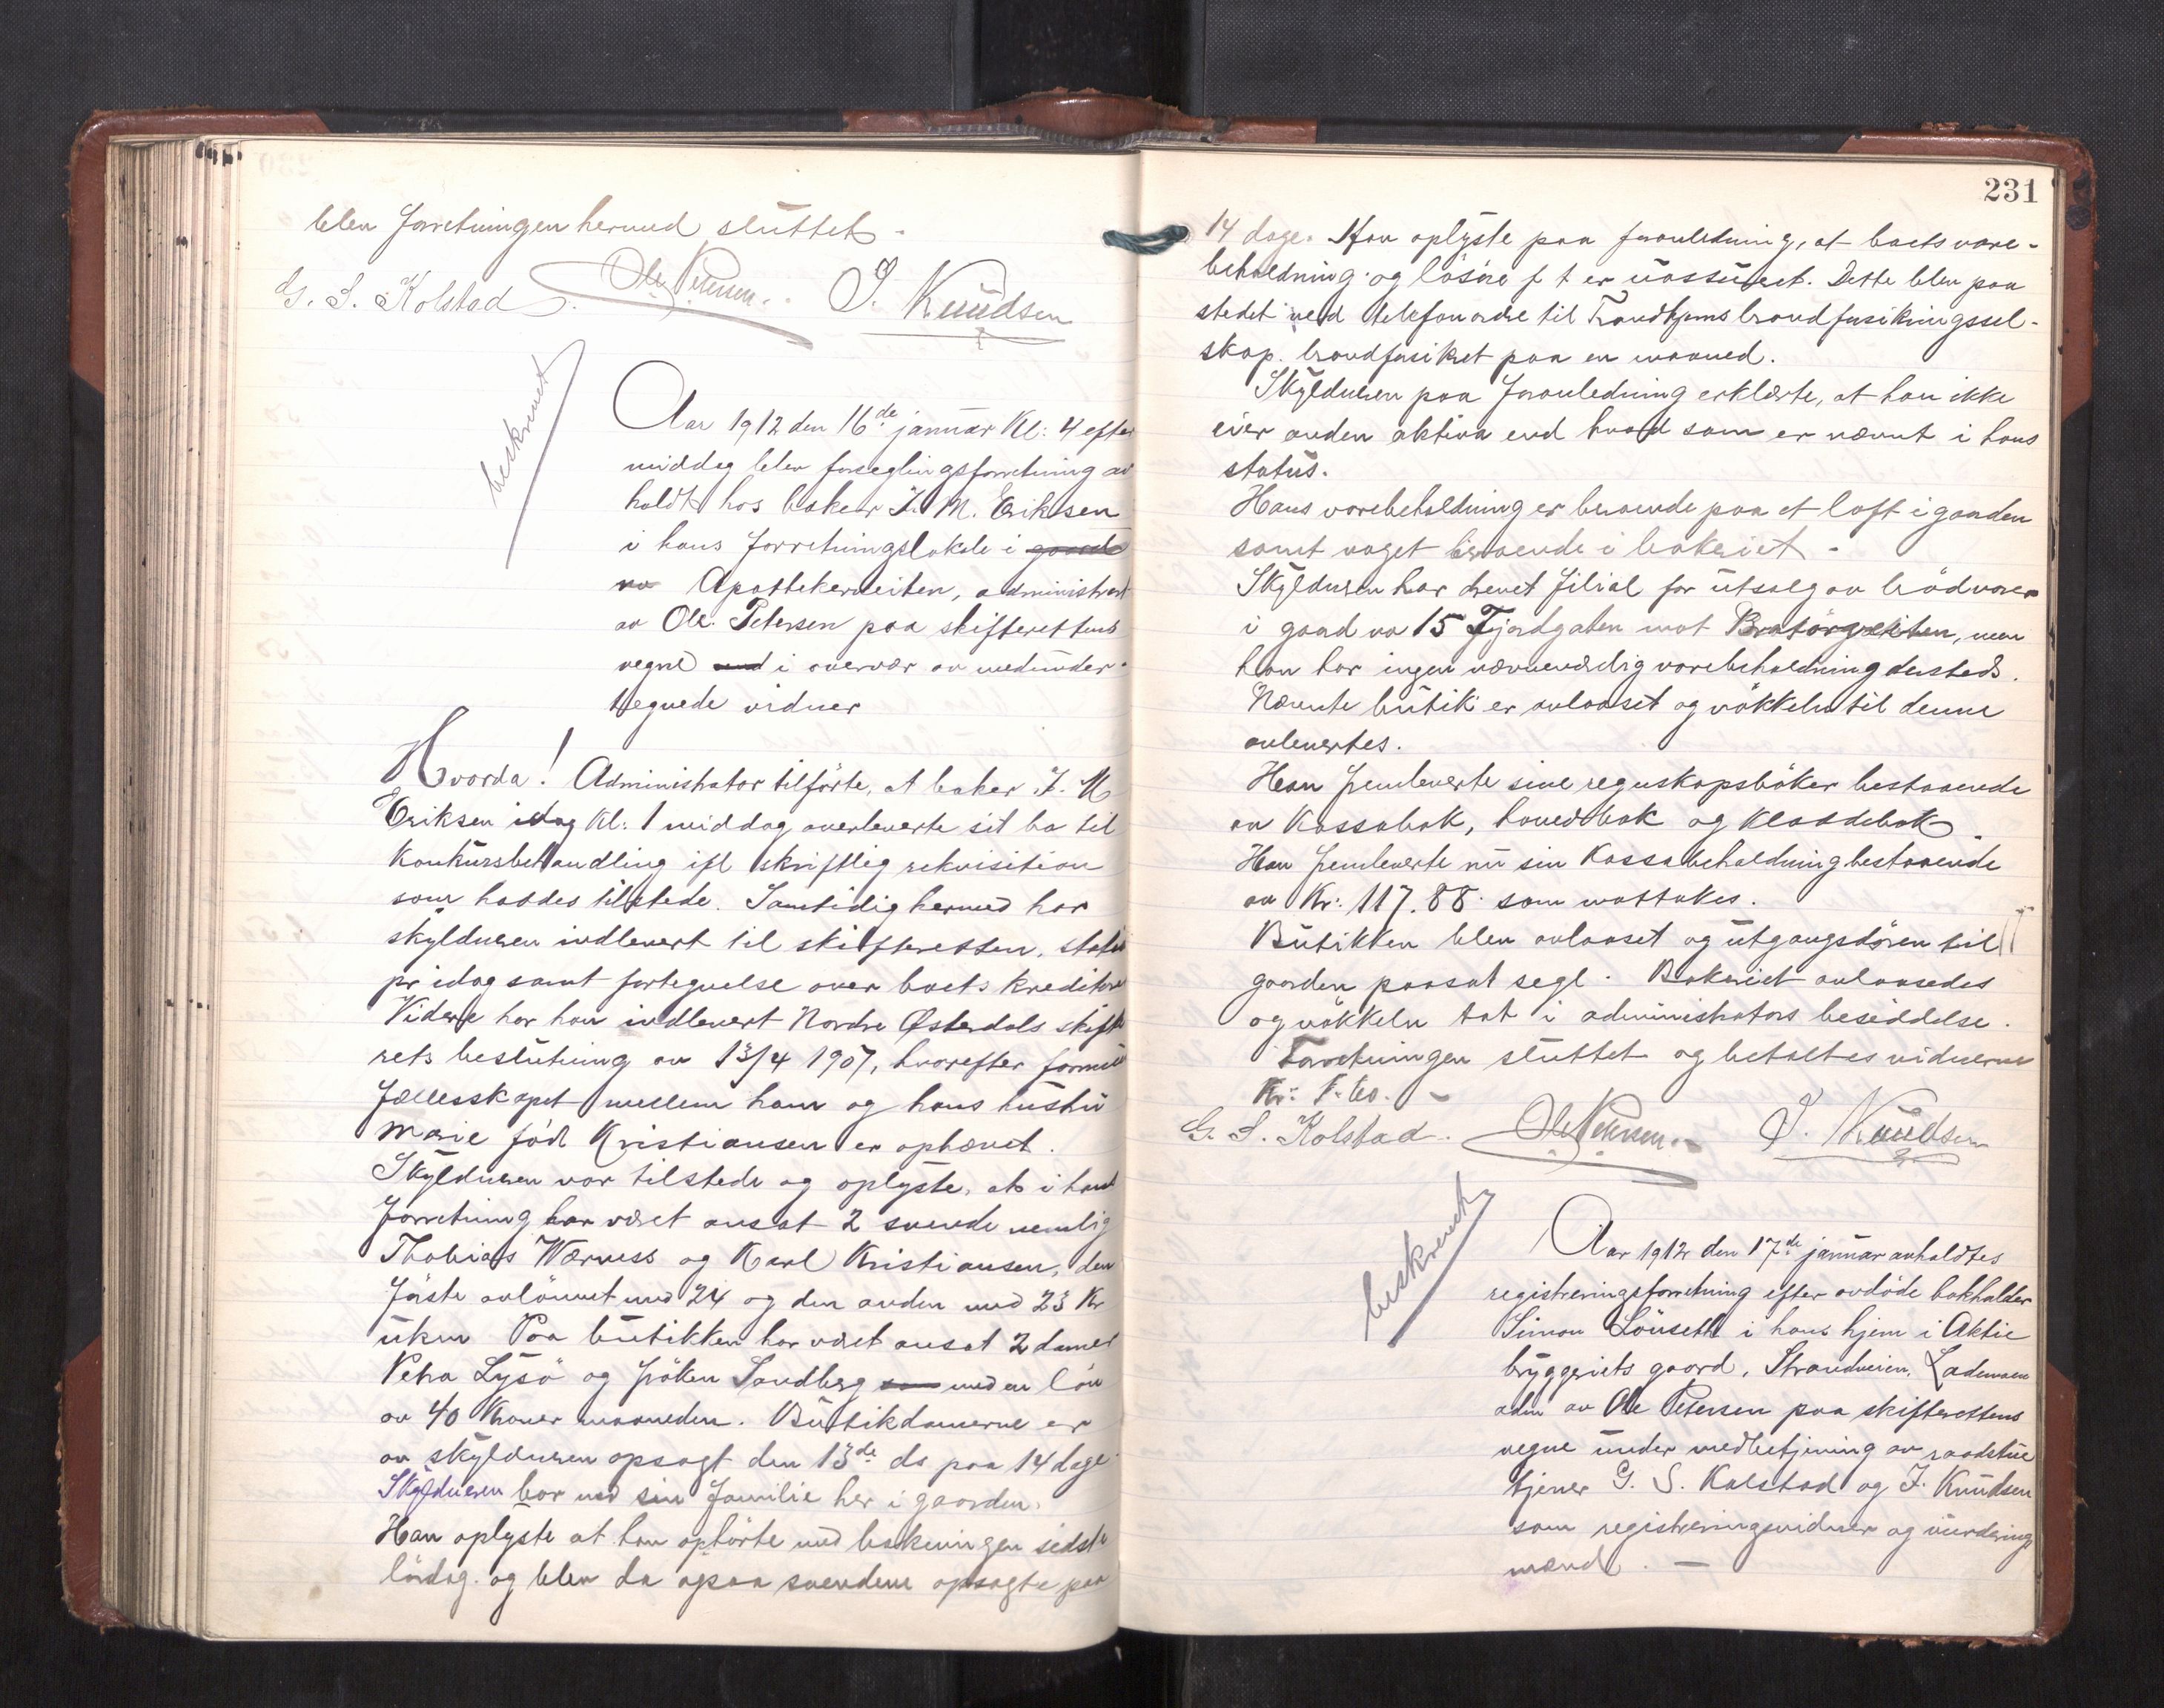 blev forretningen hermed sluttet.
G. S. Kolstad. Ole Petersen. J. Knudsen
beskrevet
Aar 1912 den 16de januar Kl: 4 efter
middag blev forseglingsforretning av
holdt hos baker J. M. Eriksen
i hans forretningslokale i gaard
no Apothekerveiten, administrert
av Ole Petersen paa skifterettens
vegne med i overvær av medunder-
tegnede vidner
Hvorda! Administrator tilførte, at baker J. M
Eriksen idag Kl: 1 middag overleverte sit bo til
Konkursbehandling ifl skriftlig rekvisition
som havdes tilstede. Samtidig hermed har
skyldneren indlevert til skifteretten, status
pr idag samt fortegnelse over boets kreditorer
Videre har han indlevert Nordre Østerdals skifte
rets beslutning av 13/4 1907, hvorefter formues
fællesskapet mellem ham og hans hustru
Marie född Kristiansen er ophævet.
Skyldneren var tilstede og oplyste, at i hans
forretning har været ansat 2 svende nemlig
Thobias Værness og Karl Kristiansen, den
første avlønnet med 24 og den anden med 23 Kr
uken Paa butikken har været ansat 2 damer
Petra Lysö og frøken Sandberg som med en løn
av 40 Kroner maaneden. Butikdamerne er
av skyldneren opsagt den 13de ds paa 14 dage
Skyldneren bor med sin familie her i gaarden.
Han oplyste at han ophørte med bakningen sidste
lördag og blev da ogsaa svendene opsagte paa
231
14 dage. Han oplyste paa foranledning, at boets vare-
beholdning og løsøre f t er uassurert. Dette blev paa
stedet ved telefonordre til Trondhjems brandforsikringssel-
skap. brandforsikret paa en maaned.
Skyldneren paa foranledning erklærte, at han ikke
eier anden aktiva end hvad som er nævnt i hans
status.
Hans varebeholdning er beroende paa et loft i gaarden
samt noget beroende i bakeriet.
Skyldneren har drevet filial for utsalg av brødvarer
i gaard no 15 Fjordgaten mot Bratörveiten, men
han har ingen nævneværdig varebeholdning dersteds.
Nævnte butik er avlaaset og nökkeln til denne
avlevertes.
Han fremleverte sine regnskapsböker bestaaende
av Kassabok, hovedbok og Kladdebok.
Han fremleverte nu sin Kassabeholdning bestaaende
av Kr: 117.88 som mottokes.
Butikken blev avlaaset og utgangsdøren til
gaarden paasat segl. Bakeriet avlaasedes
og nökkeln tat i administrators besiddelse.
Forretningen sluttet og betaltes vidnerne
G. S. Kolstad. Ole Petersen. J. Knudsen
beskrevet
Aar 1912 den 17de januar avholdtes
registreringsforretning efter avdöde bokholder
Simon Lönseth i hans hjem i Aktie
bryggeriets gaard, Strandveien, Lademoen
adm av Ole Petersen paa skifterettens
vegne under medbetjening av raadstue
tjener G. S. Kolstad og J. Knudsen
som registreringsvidner og vurderings
mænd. —